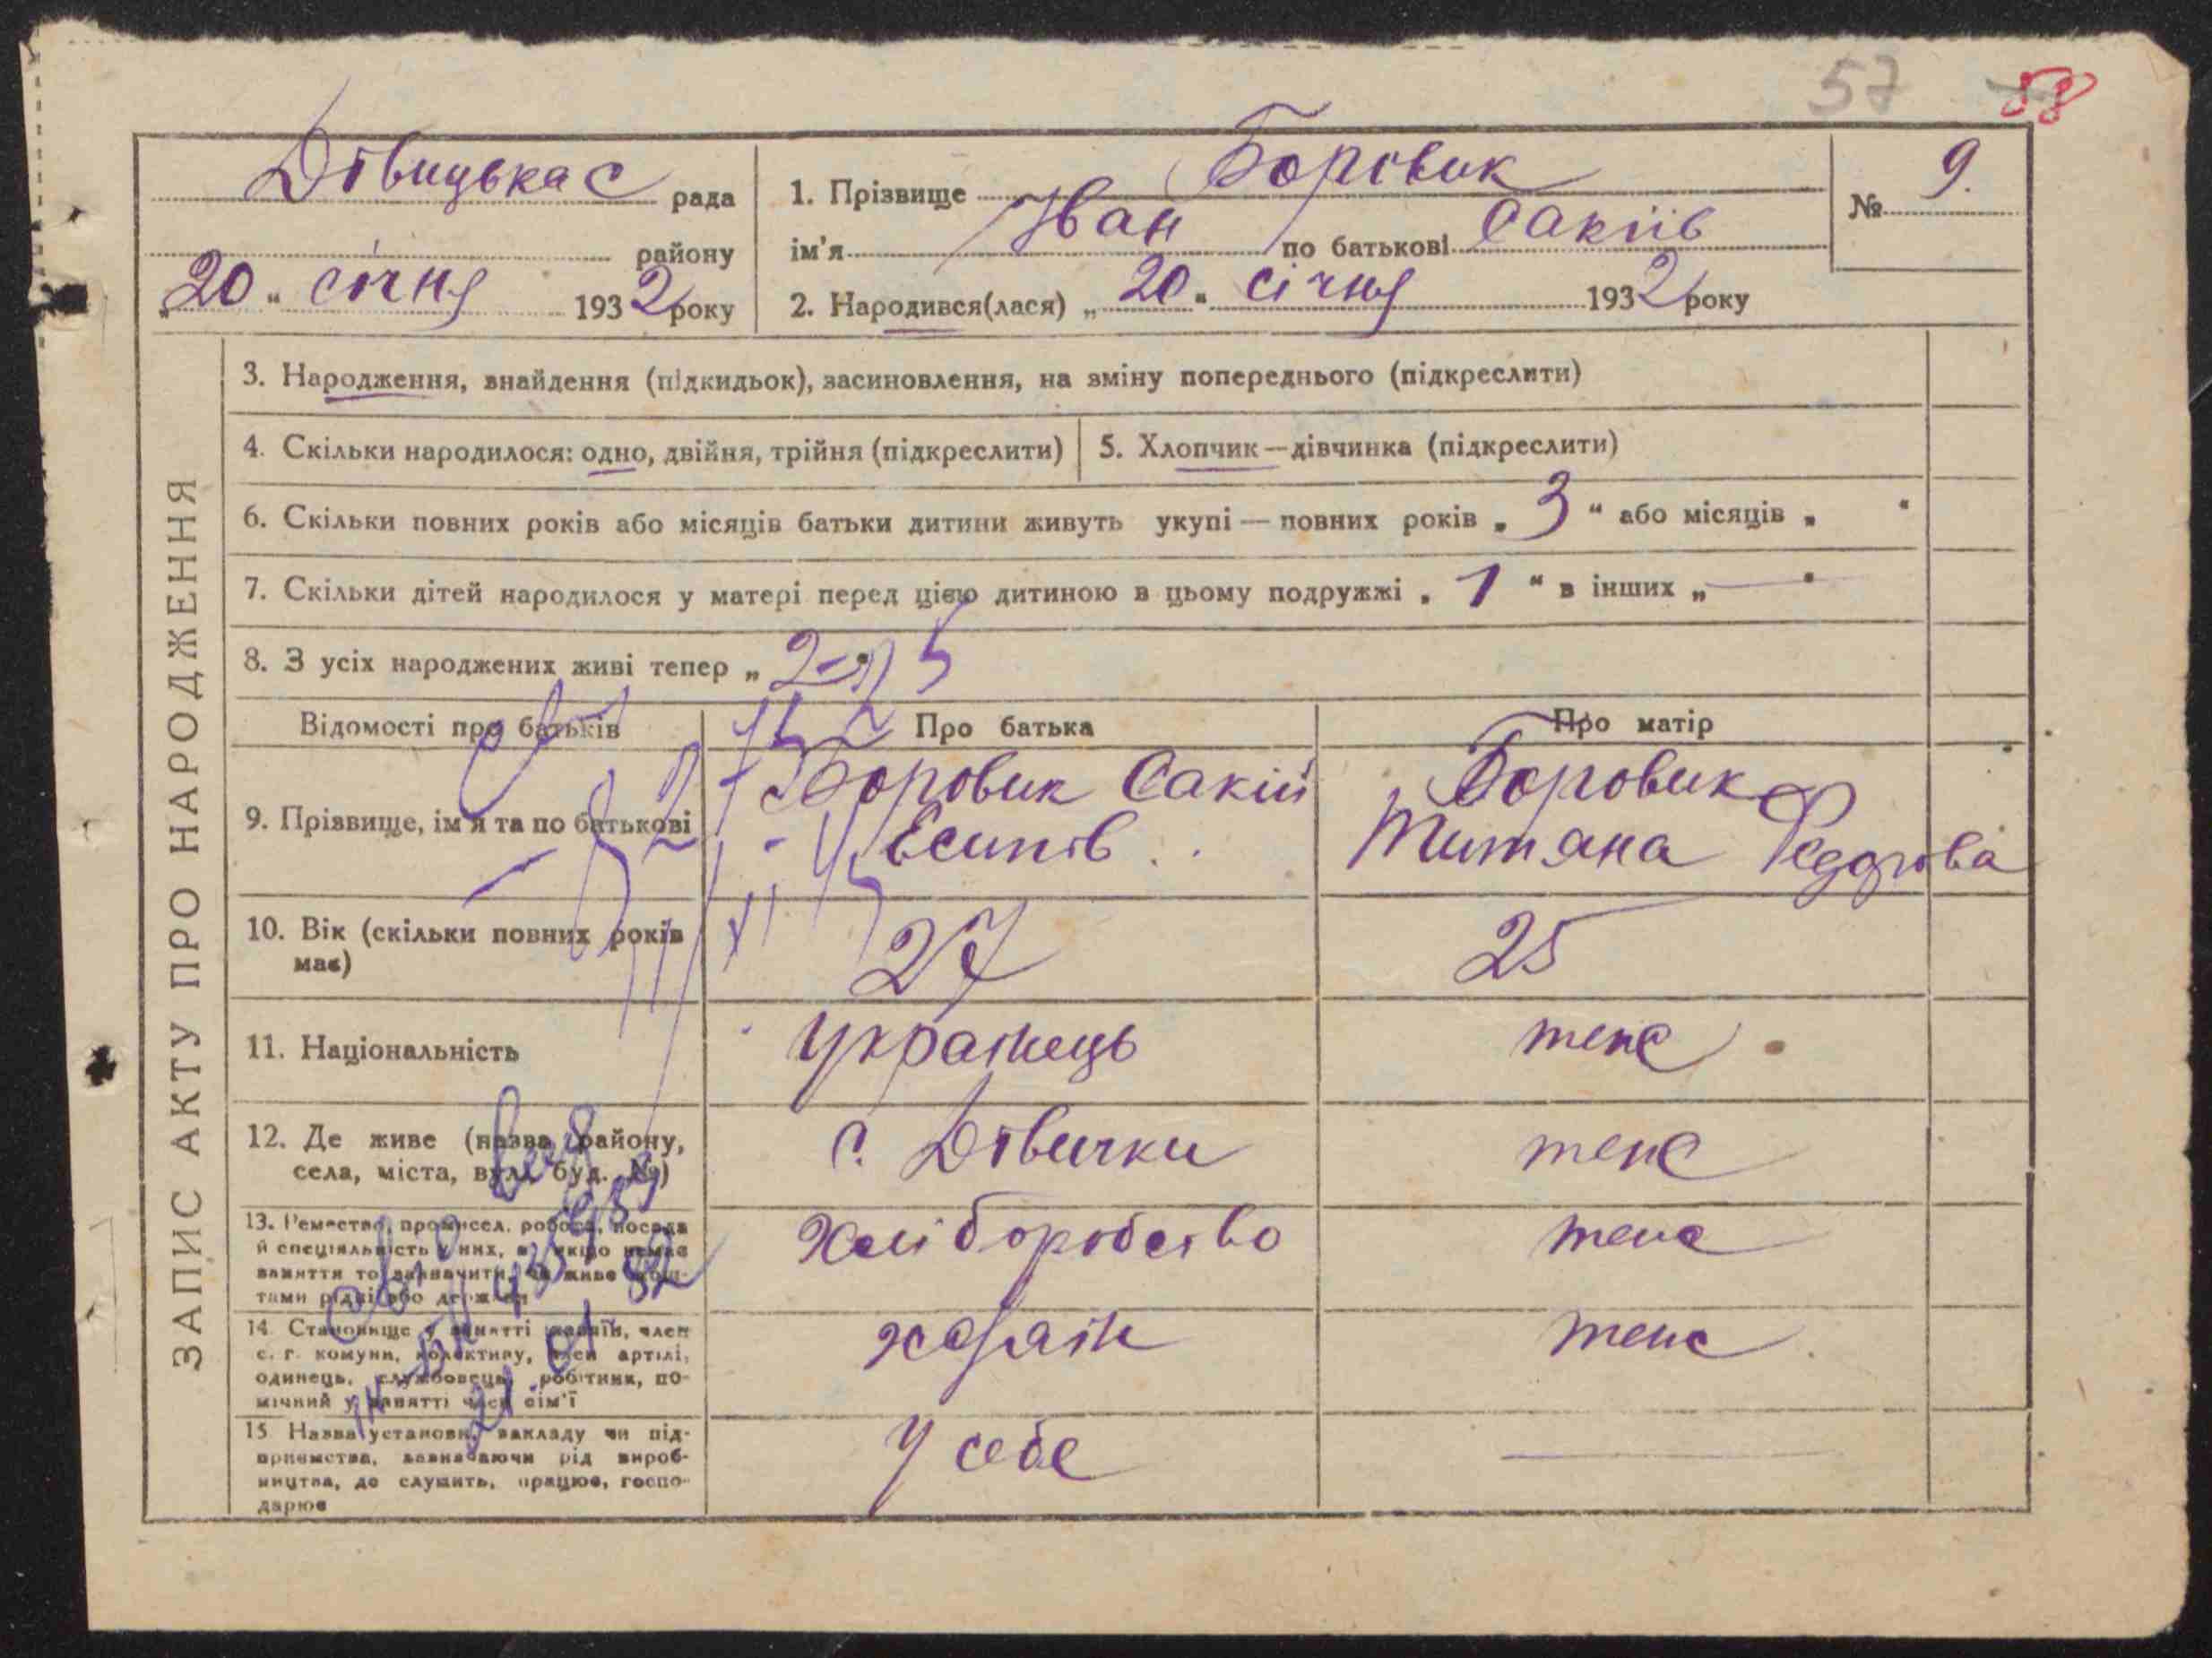 57 58
Дівицька С рада
району
„20“ січня 1932 року
1. Прізвище Боровик
ім'я Іван по батькові Сакіїв
2. Народився(лася) „20“ січня 1932 року
№ 9.
ЗАПИС АКТУ ПРО НАРОДЖЕННЯ
3. Народження, знайдення (підкидьок), засиновлення, на зміну попереднього (підкреслити)
4. Скільки народилося: одно, двійня, трійня (підкреслити)
5. Хлопчик—дівчинка (підкреслити)
6. Скільки повних років або місяців батьки дитини живуть укупі — повних років „3“ або місяців „ “
7. Скільки дітей народилося у матері перед цією дитиною в цьому подружжі „1“ в інших „—“
8. З усіх народжених живі тепер „2“
Відомості про батьків
Про батька
Про матір
9. Прізвище, ім'я та по батькові
Боровик Сакій
Есипів
Боровик
Титяна Федорова
10. Вік (скільки повних років
має)
27
25
11. Національність
Українець
теж
12. Де живе (назва району,
села, міста, вул., буд. №)
с. Дівички
теж
13. Ремество, промисел, робота, посада
й спеціяльність у них, а якщо немає
заняття то зазначити, чи живе кош-
тами рідні або держави
Хліборобство
теж
14. Становище у занятті хазяїн, член
с. г. комуни, колективу, член артілі,
одинець, службовець, робітник, по-
мічний у занятті член сім'ї
хазяїн
теж
15. Назва установи, закладу чи під-
приємства, зазначаючи рід вироб-
ництва, де служить, працює, госпо-
дарює
У себе